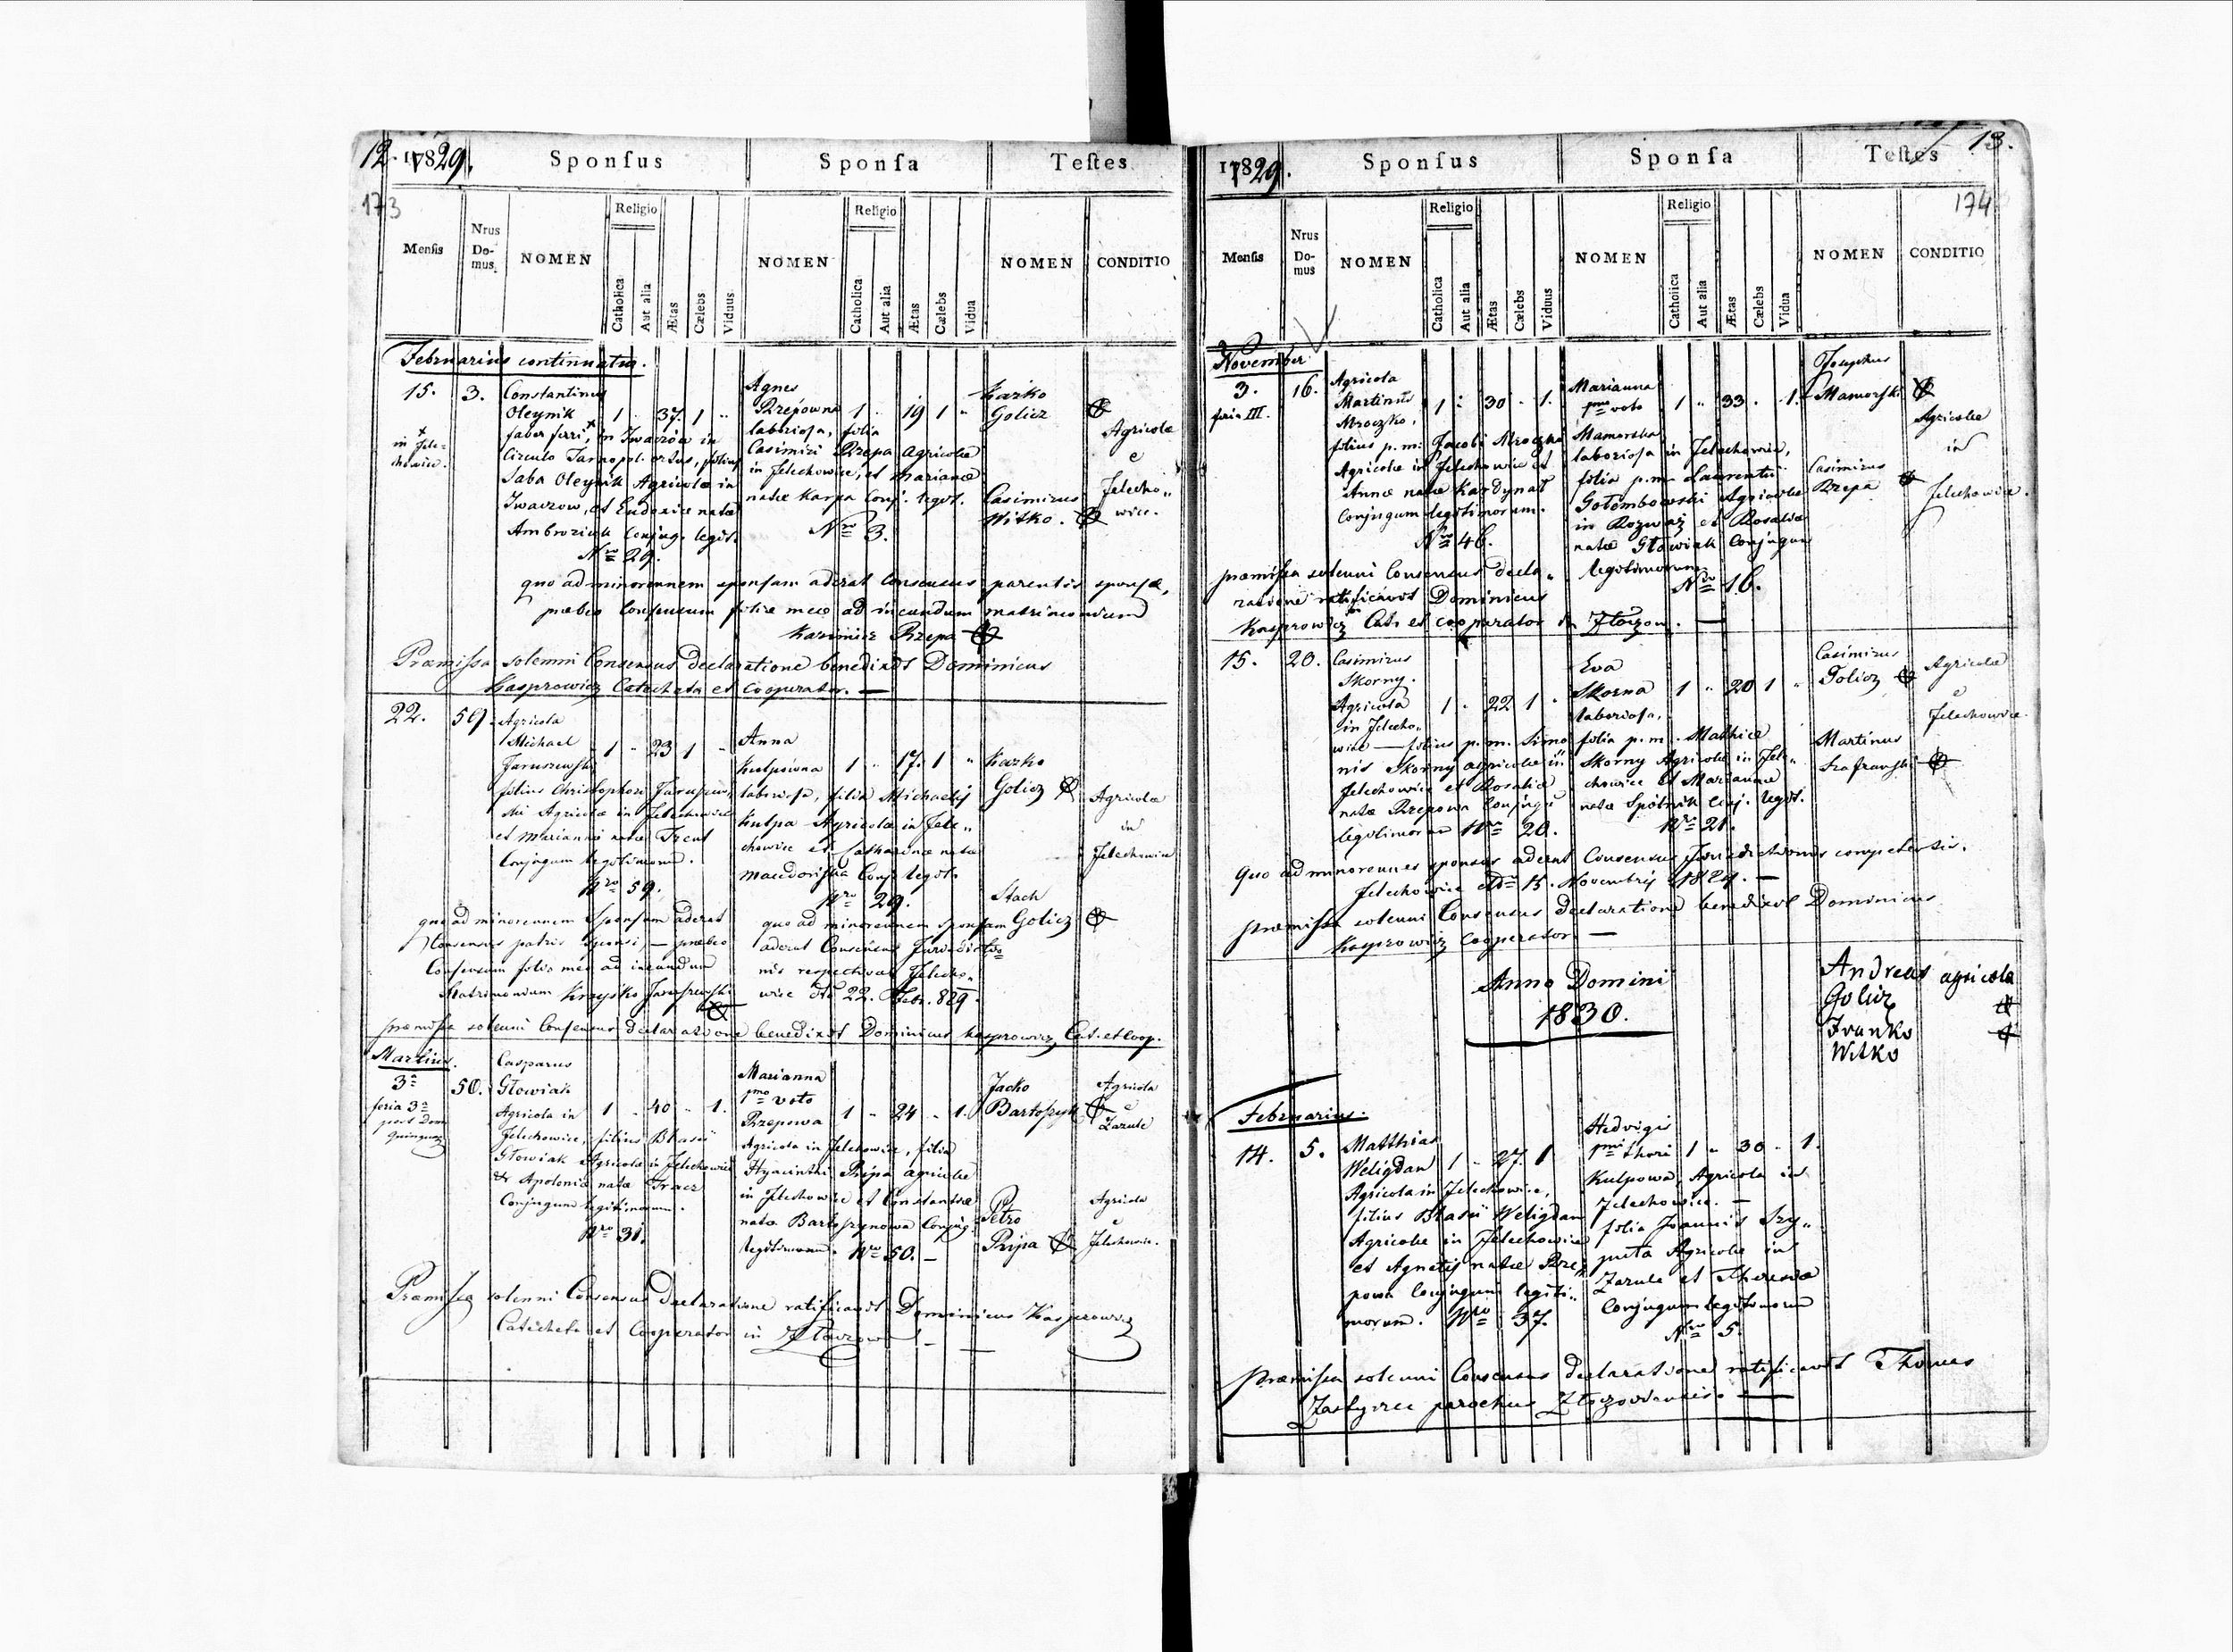 12. 1829. Sponsus Sponsa Testes
173
Mensis Nrus Domus NOMEN Religio Catholica Aut alia Ætas Cælebs Viduus NOMEN Religio Catholica Aut alia Ætas Cælebs Vidua NOMEN CONDITIO
Februarius continuatio.
15. 3.
in Jele-
chowice.
Constantinus
Oleynik 1 " 37. 1 "
faber ferri, in Iwaczow in
Circulo Tarnopol. ortus, filius
Saba Oleynik Agricolæ in
Iwaczow, et Eudoxiæ natæ
Ambroziak Conjug. legit.
Nro 29.
Agnes
Rzepowna 1 " 19 1 "
laboriosa, filia
Casimiri Rzepa Agricolæ
in Jelechowice, et Mariannæ
natæ Karpa Conj. legit.
Nro 3.
Kazko
Golicz
Casimirus
Witko.
Agricolæ
e
Jelecho"
wice.
quo ad minorennem sponsam aderat Consensus parentis sponsæ,
præbeo Consensum filiæ meæ ad ineundum matrimonium
Kazimierz Rzepa
Præmissa solemni Consensus declaratione benedixit Dominicus
Kasprowicz Catecheta et Cooperator. —
22. 59.
Agricola
Michael 1 " 23 1 "
Jaruszewski
filius Christophori Jaruszew"
ski Agricolæ in Jelechowice
et Mariannæ natæ
Conjugum legitimorum.
Nro 59.
Anna
Kulpowna 1 " 17. 1 "
laboriosa, filia Michaelis
Kulpa Agricolæ in Jele"
chowice et Catharinæ natæ
Conj. legit.
Nro 29.
Kazko
Golicz
Stach
Golicz
Agricolæ
in
Jelechowice
quo ad minorennem Sponsum aderat
Consensus patris Sponsi, — præbeo
Consensum filio meo ad ineundum
Matrimonium Krzysko Jaruszewski
quo ad minorennem sponsam
aderat Consensus Jurisdictio
nis respectivæ Jelecho"
wice dto 22. Febr. 829.
præmissa solenni Consensus declaratione benedixit Dominicus Kasprowicz Cat. et Coop.
Martius.
3a 50.
feria 3a
post Dom
Quinquag
Casparus
Głowiak
Agricola in 1 " 40 " 1.
Jelechowice, filius Blasii
Głowiak Agricolæ in Jelechowice
& Apoloniæ natæ Tracz
Conjugum legitimorum.
Nro 31.
Marianna
1mo voto
Rzepowa 1 " 24 " 1.
Agricola in Jelechowice, filia
Hyacinthi Pripa agricolæ
in Jelechowice et Constantiæ
natæ Bartoszynowa Conjug.
legitimorum. Nro 50. —
Jacko
Bartoszyk
Petro
Pripa
Agricola
e
Zazule
Agricola
e
Jelechowice.
Præmissa solenni Consensus Declaratione ratificavit Dominicus Kasprowicz
Catecheta et Cooperator in Złoczow. —
1829. Sponsus Sponsa Testes 13.
174
Mensis Nrus Domus NOMEN Religio Catholica Aut alia Ætas Cælebs Viduus NOMEN Religio Catholica Aut alia Ætas Cælebs Vidua NOMEN CONDITIO
November
3. 16.
feria III.
Agricola
Martinus 1 " 30 " 1.
Mroczko,
filius p.m. Jacobi Mroczko
Agricolæ in Jelechowice et
Annæ natæ Kardynał
Conjugum legitimorum.
Nro 46.
Marianna
1mo voto 1 " 33. " 1.
Mamorska
laboriosa in Jelechowice,
filia p.m. Laurentii
Gołembowski Agricolæ
in Rozwaz et Rosaliæ
natæ Głowiak Conjugum
legitimorum
Nro 16.
Josephus
Mamorski
Casimirus
Rzepa
Agricolæ
in
Jelechowice.
præmissa solenni Consensus decla"
ratione ratificavit Dominicus
Kasprowicz Cat. et cooperator in Złoczow. —
15. 20.
Casimirus
Skorny.
Agricola 1 " 22 1 "
in Jelecho"
wice — filius p.m. Simo"
nis Skorny agricolæ in
Jelechowice et Rosaliæ
natæ Rzepowa Conjugum
legitimorum Nro 20.
Eva
Skorna 1 " 20 1 "
laboriosa,
filia p.m. Mathiæ
Skorny Agricolæ in Jele"
chowice et Mariannæ
natæ Spótnik Conj. legit.
Nro 21.
Casimirus
Golicz
Martinus
Szafranski
Agricolæ
e
Jelechowice.
Quo ad minorennes sponsos aderat Consensus Jurisdictionis competentis.
Jelechowice dto 15. Novembris 1829. —
præmissa solenni Consensus declaratione benedixit Dominicus
Kasprowicz Cooperator. —
Anno Domini
1830.
Andreas agricola
Golicz
Iwanko
Witko
Februarius.
14. 5.
Matthias
Weligdan 1 " 27. 1
Agricola in Jelechowice,
filius Blasii Weligdan
Agricolæ in Jelechowice
et Agnetis natæ Rze"
powa Conjugum legiti"
morum. Nro 37.
Hedvigis
1mi thori 1 " 30 " 1.
Kulpowa, Agricola in
Jelechowice. —
filia Joannis Szy"
puta Agricolæ in
Zazule et Theresiæ
Conjugum legitimorum
Nro 5.
præmissa solenni Consensus declaratione ratificavit Thomas
Zastyrec parochus Złoczoviensis. —